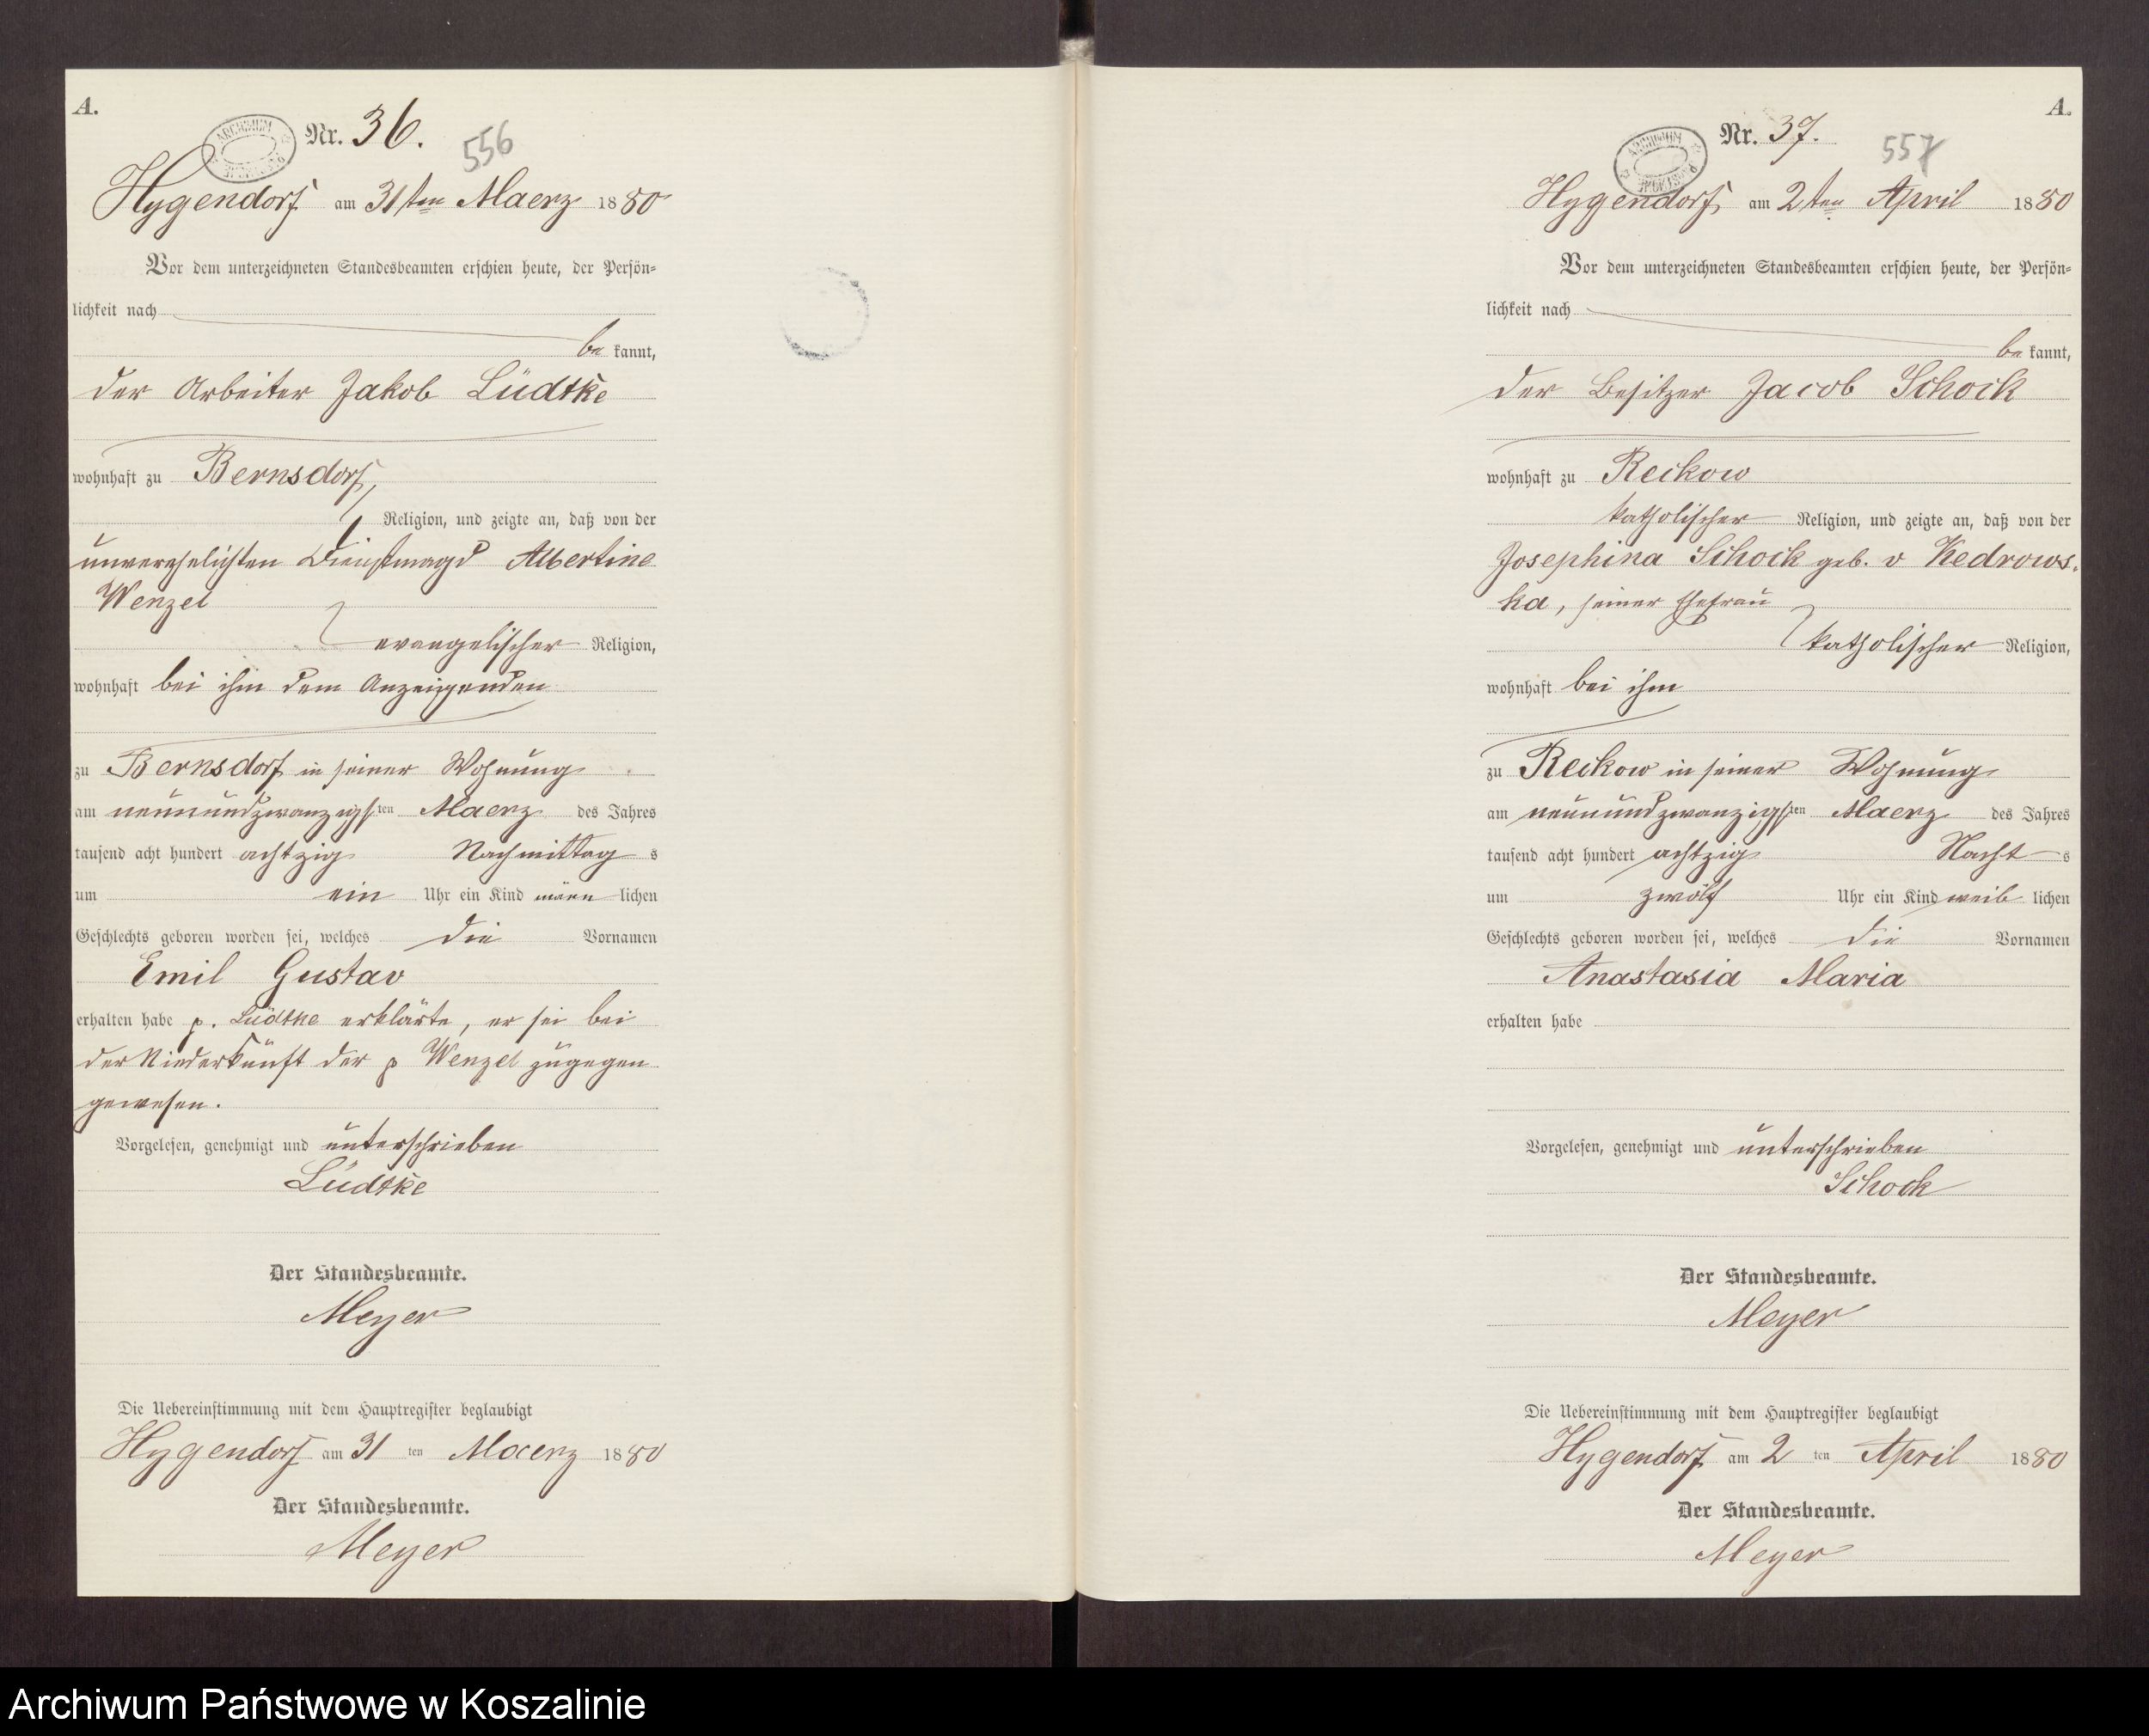 A.
Nr. 36.
556
Hygendorf am 31ten Maerz 1880
Vor dem unterzeichneten Standesbeamten erschien heute, der Persön-
lichkeit nach
be kannt,
der Arbeiter Jakob Lüdtke
wohnhaft zu Bernsdorf,
Religion, und zeigte an, daß von der
unverehelichten Dienstmagd Albertine
Wenzel
evangelischer Religion,
wohnhaft bei ihm dem Anzeigenden
zu Bernsdorf in seiner Wohnung
am neunundzwanzigsten Maerz des Jahres
tausend acht hundert achtzig Nachmittag s
um ein Uhr ein Kind männ lichen
Geschlechts geboren worden sei, welches die Vornamen
Emil Gustav
erhalten habe p. Lüdtke erklärte, er sei bei
der Niederkunft der p Wenzel zugegen
gewesen.
Vorgelesen, genehmigt und unterschrieben
Lüdtke
Der Standesbeamte.
Meyer
Die Uebereinstimmung mit dem Hauptregister beglaubigt
Hygendorf am 31 ten Maerz 1880
Der Standesbeamte.
Meyer
A.
Nr. 37.
557
Hygendorf am 2ten April 1880
Vor dem unterzeichneten Standesbeamten erschien heute, der Persön-
lichkeit nach
be kannt,
der Besitzer Jacob Schock
wohnhaft zu Reckow
katholischer Religion, und zeigte an, daß von der
Josephina Schock geb. v Kedrows-
ka, seiner Ehefrau
katholischer Religion,
wohnhaft bei ihm
zu Reckow in seiner Wohnung
am neunundzwanzigsten Maerz des Jahres
tausend acht hundert achtzig Nacht s
um zwölf Uhr ein Kind weib lichen
Geschlechts geboren worden sei, welches die Vornamen
Anastasia Maria
erhalten habe
Vorgelesen, genehmigt und unterschrieben
Schock
Der Standesbeamte.
Meyer
Die Uebereinstimmung mit dem Hauptregister beglaubigt
Hygendorf am 2 ten April 1880
Der Standesbeamte.
Meyer
Archiwum Państwowe w Koszalinie